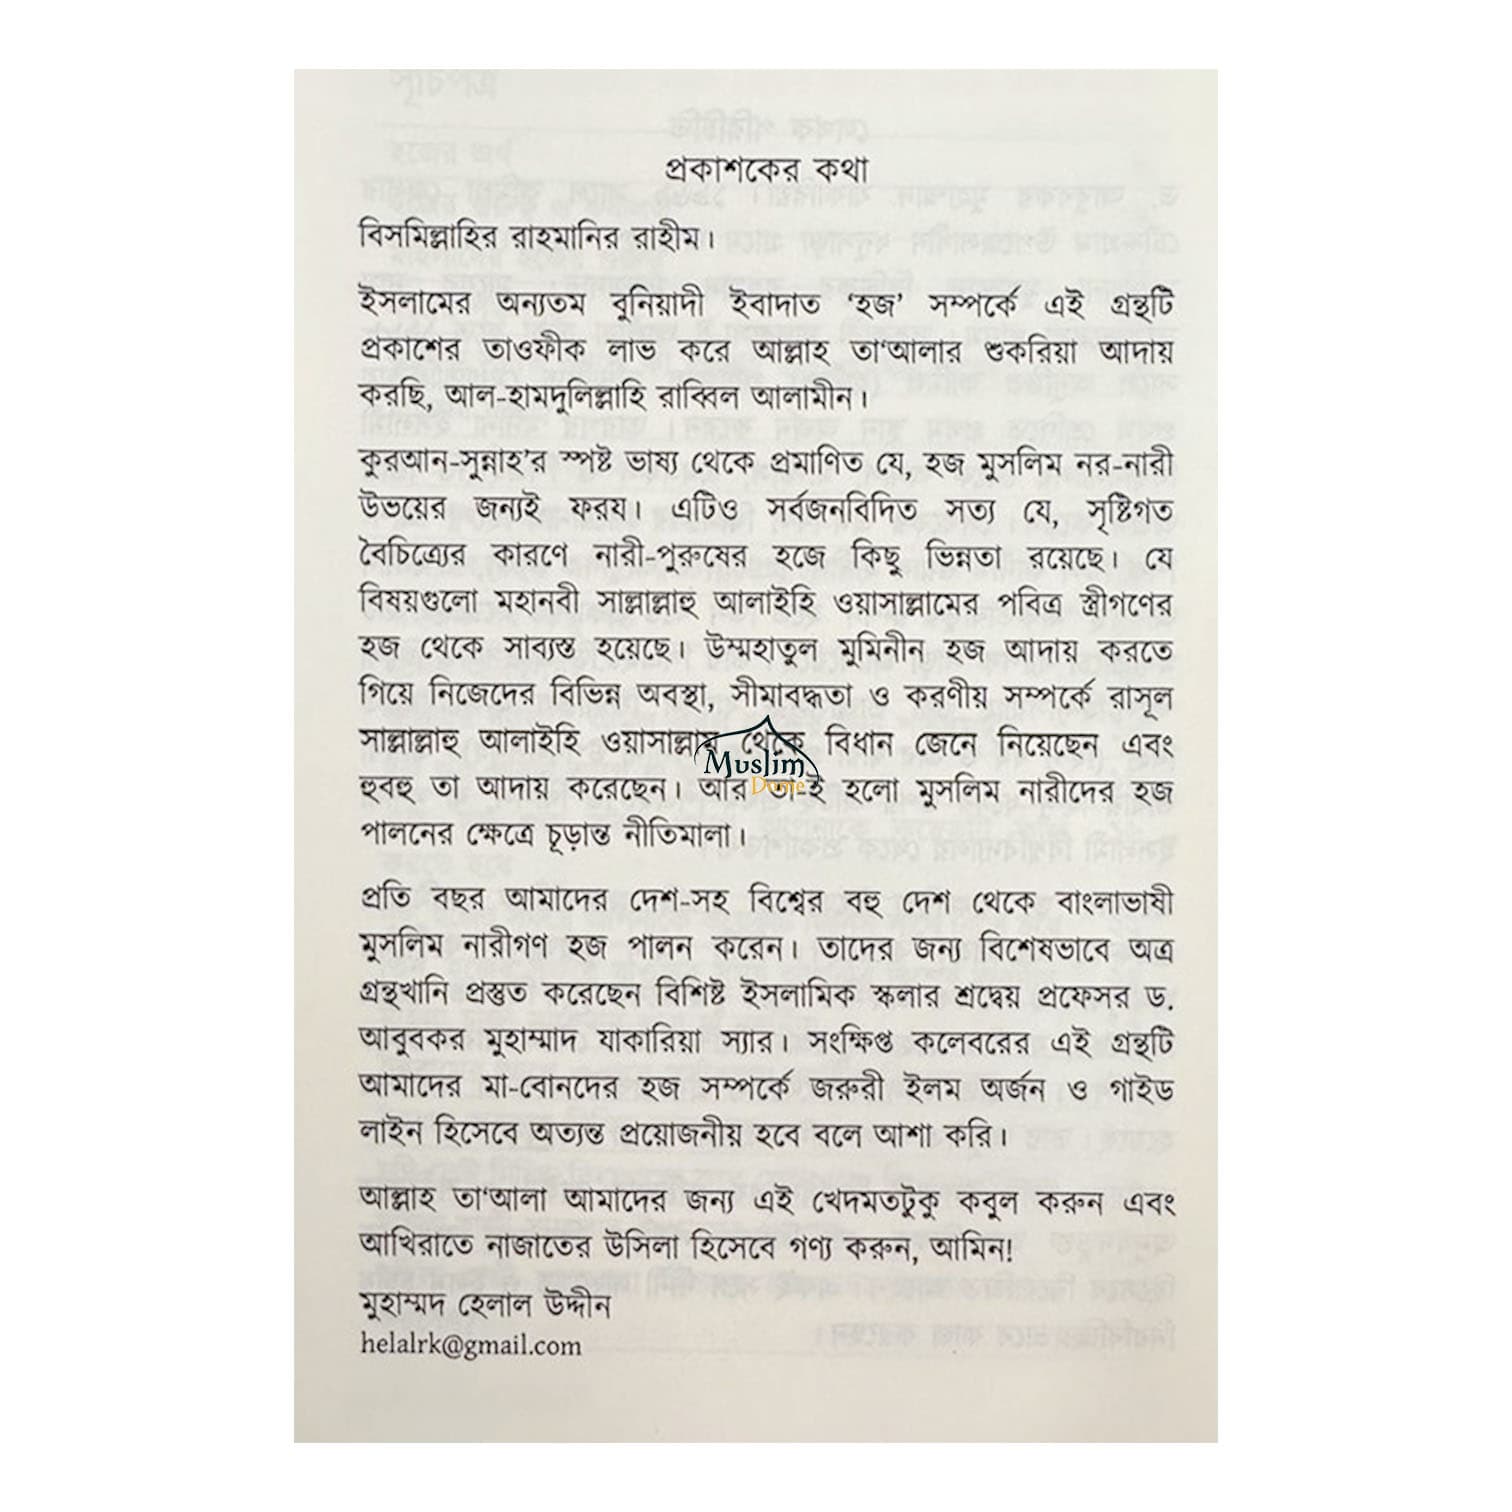 প্রকাশকের কথা
বিসমিল্লাহির রাহমানির রাহীম।
ইসলামের অন্যতম বুনিয়াদী ইবাদাত ‘হজ’ সম্পর্কে এই গ্রন্থটি
প্রকাশের তাওফীক লাভ করে আল্লাহ তা‘আলার শুকরিয়া আদায়
করছি, আল-হামদুলিল্লাহি রাব্বিল আলামীন।
কুরআন-সুন্নাহ’র স্পষ্ট ভাষ্য থেকে প্রমাণিত যে, হজ মুসলিম নর-নারী
উভয়ের জন্যই ফরয। এটিও সর্বজনবিদিত সত্য যে, সৃষ্টিগত
বৈচিত্র্যের কারণে নারী-পুরুষের হজে কিছু ভিন্নতা রয়েছে। যে
বিষয়গুলো মহানবী সাল্লাল্লাহু আলাইহি ওয়াসাল্লামের পবিত্র স্ত্রীগণের
হজ থেকে সাব্যস্ত হয়েছে। উম্মহাতুল মুমিনীন হজ আদায় করতে
গিয়ে নিজেদের বিভিন্ন অবস্থা, সীমাবদ্ধতা ও করণীয় সম্পর্কে রাসূল
সাল্লাল্লাহু আলাইহি ওয়াসাল্লাম থেকে বিধান জেনে নিয়েছেন এবং
Muslim
হুবহু তা আদায় করেছেন। আর তা-ই হলো মুসলিম নারীদের হজ
Dume
পালনের ক্ষেত্রে চূড়ান্ত নীতিমালা।
প্রতি বছর আমাদের দেশ-সহ বিশ্বের বহু দেশ থেকে বাংলাভাষী
মুসলিম নারীগণ হজ পালন করেন। তাদের জন্য বিশেষভাবে অত্র
গ্রন্থখানি প্রস্তুত করেছেন বিশিষ্ট ইসলামিক স্কলার শ্রদ্বেয় প্রফেসর ড.
আবুবকর মুহাম্মাদ যাকারিয়া স্যার। সংক্ষিপ্ত কলেবরের এই গ্রন্থটি
আমাদের মা-বোনদের হজ সম্পর্কে জরুরী ইলম অর্জন ও গাইড
লাইন হিসেবে অত্যন্ত প্রয়োজনীয় হবে বলে আশা করি।
আল্লাহ তা‘আলা আমাদের জন্য এই খেদমতটুকু কবুল করুন এবং
আখিরাতে নাজাতের উসিলা হিসেবে গণ্য করুন, আমিন!
মুহাম্মদ হেলাল উদ্দীন
helalrk@gmail.com